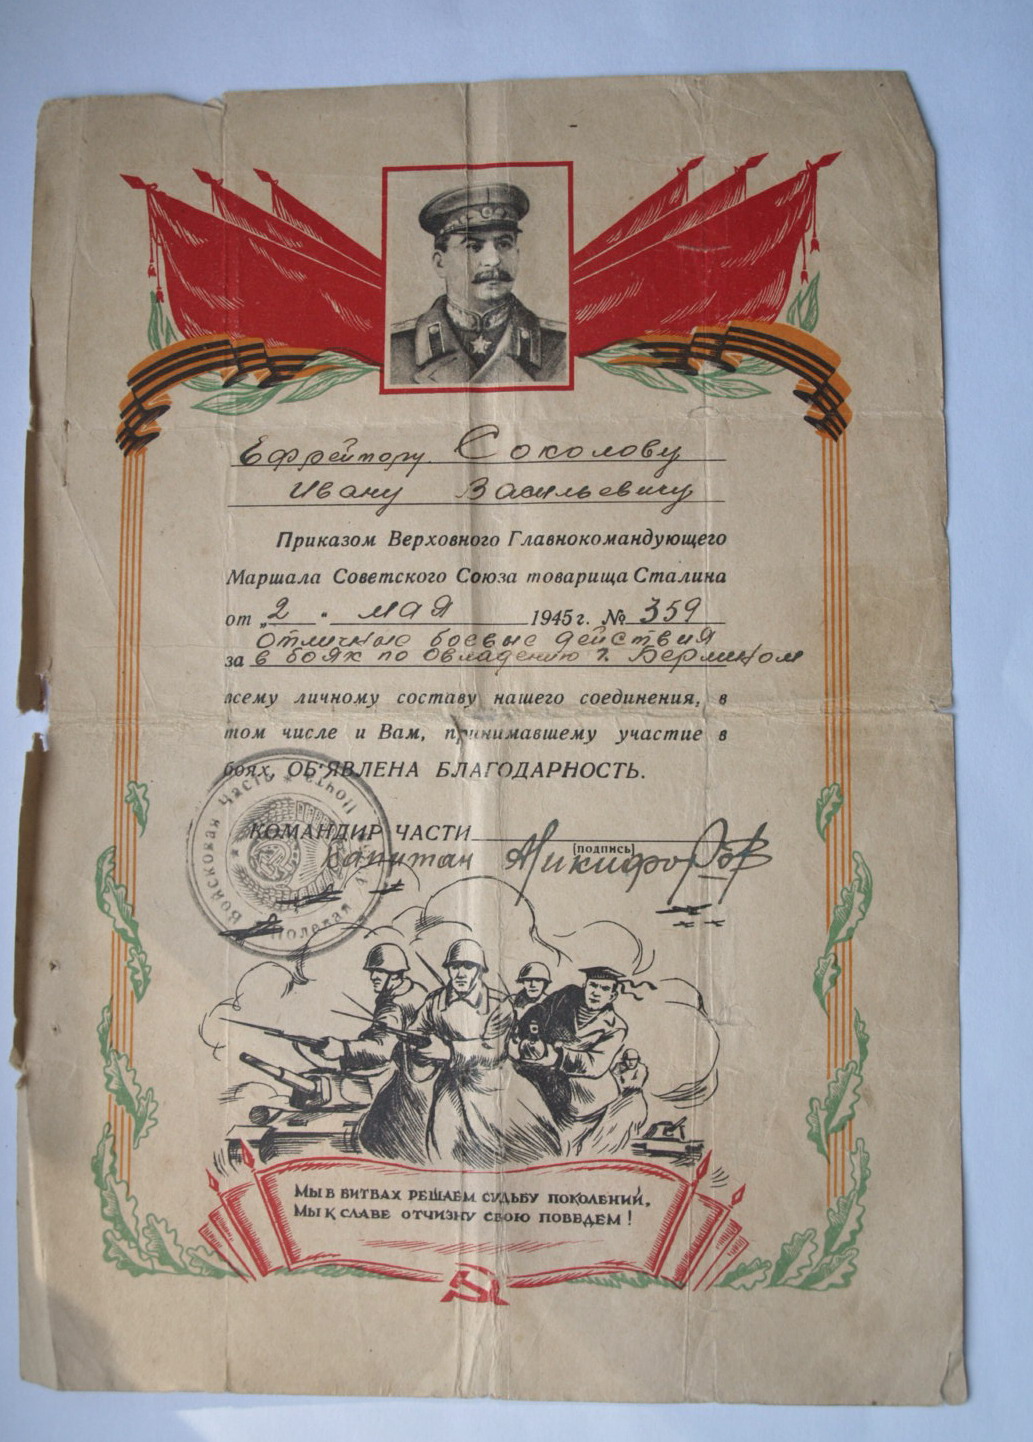 Ефрейтору Соколову
Ивану Васильевичу
Приказом Верховного Главнокомандующего
Маршала Советского Союза товарища Сталина
от „2 " мая 1945 г. № 359
отличные боевые действия
за в боях по овладению г. Берлином
всему личному составу нашего соединения, в
том числе и Вам, принимавшему участие в
боях, ОБ'ЯВЛЕНА БЛАГОДАРНОСТЬ.
КОМАНДИР ЧАСТИ
(подпись)
капитан Никифоров
Войсковая часть ★ Полевая почта
Мы в битвах решаем судьбу поколений,
Мы к славе отчизну свою поведем!